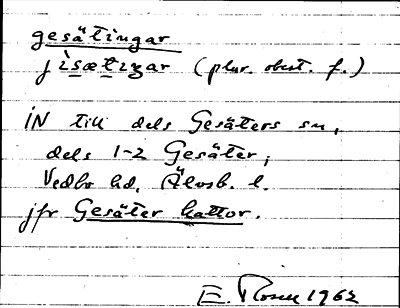 gesätingar
jisætiŋar (plur. obest. f.)
IN till dels Gesäters sn,
dels 1-2 Gesäter,
Vedbo hd, Älvsb. l.
jfr Gesäter kattor.
E. Rosén 1962